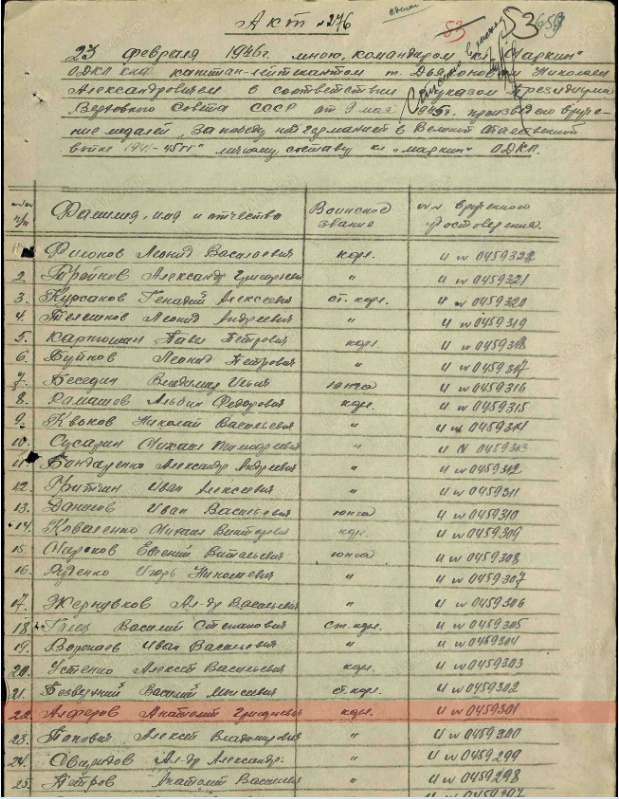 Акт №276
53 659
23 февраля 1946г. мною, командиром кл "Маркин"
ОДКЛ капитан-лейтенантом т. Николаем
Александровичем в соответствии с указом Президиума
Верховного Совета СССР от 9 мая 1945г. произведено вруче-
ние медалей "За победу над Германией в Великой Отечественной
войне 1941-45гг" личному составу кл "Маркин" ОДКЛ.
п/п Фамилия, имя и отчество Воинское звание №№ врученного удостоверения.
Леонид Васильевич кдл. И № 0459322
2. Александр Григорьевич " И № 0459321
3. Курсаков Генадий Алексеевич ст. кдл. И № 0459320
4. Телешнов Леонид Андреевич " И № 0459319
5. Павел Петрович кдл. И № 0459318
6. Буйнов Леонид Петрович " И № 0459317
7. Беседин Владимир Ильич юнга И № 0459316
8. Рамашов Альбин Федорович кдл. И № 0459315
9. Квоков Николай Васильевич " И № 0459314
10. Сусарин Михаил Тимофеевич " И № 0459313
11. Бондаренко Александр Андреевич " И № 0459312
12. Иван Алексеевич " И № 0459311
13. Данилов Иван Васильевич юнга И № 0459310
14. Коваленко Михаил Викторович кдл. И № 0459309
15. Евгений Витальевич юнга И № 0459308
16. Руденко Игорь Николаевич " И № 0459307
17. Жернувков Ал-др Васильевич " И № 0459306
18. Голец Василий Степанович ст. кдл. И № 0459305
19. Воропаев Иван Васильевич " И № 0459304
20. Устенко Алексей Васильевич кдл. И № 0459303
21. Беззубкий Василий Моисеевич ст. кдл. И № 0459302
22. Алферов Анатолий Григорьевич кдл. И № 0459301
23. Попович Алексей Владимирович " И № 0459300
24. Свиридов Ал-др Александр. " И № 0459299
25. Петров Анатолий Василье " И № 0459298